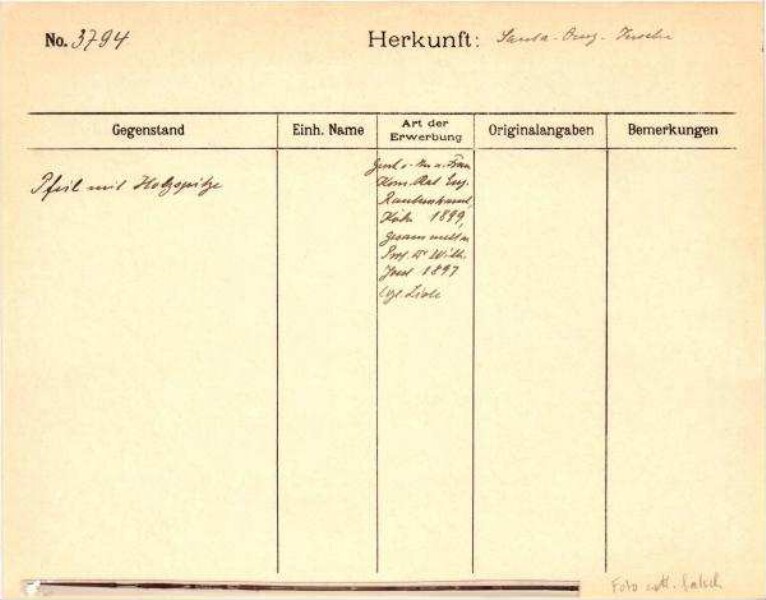 No. 3794
Herkunft: Santa-Cruz-Inseln
Gegenstand
Einh. Name
Art der
Erwerbung
Originalangaben
Bemerkungen
Pfeil mit Holzspitze
Gesch. v. Hn. u. Frau
Kom. Rat Eug.
Rautenstrauch
Köln 1899,
gesammelt v.
Prof. Dr Wilh.
Joest 1897
Foto evtl. falsch